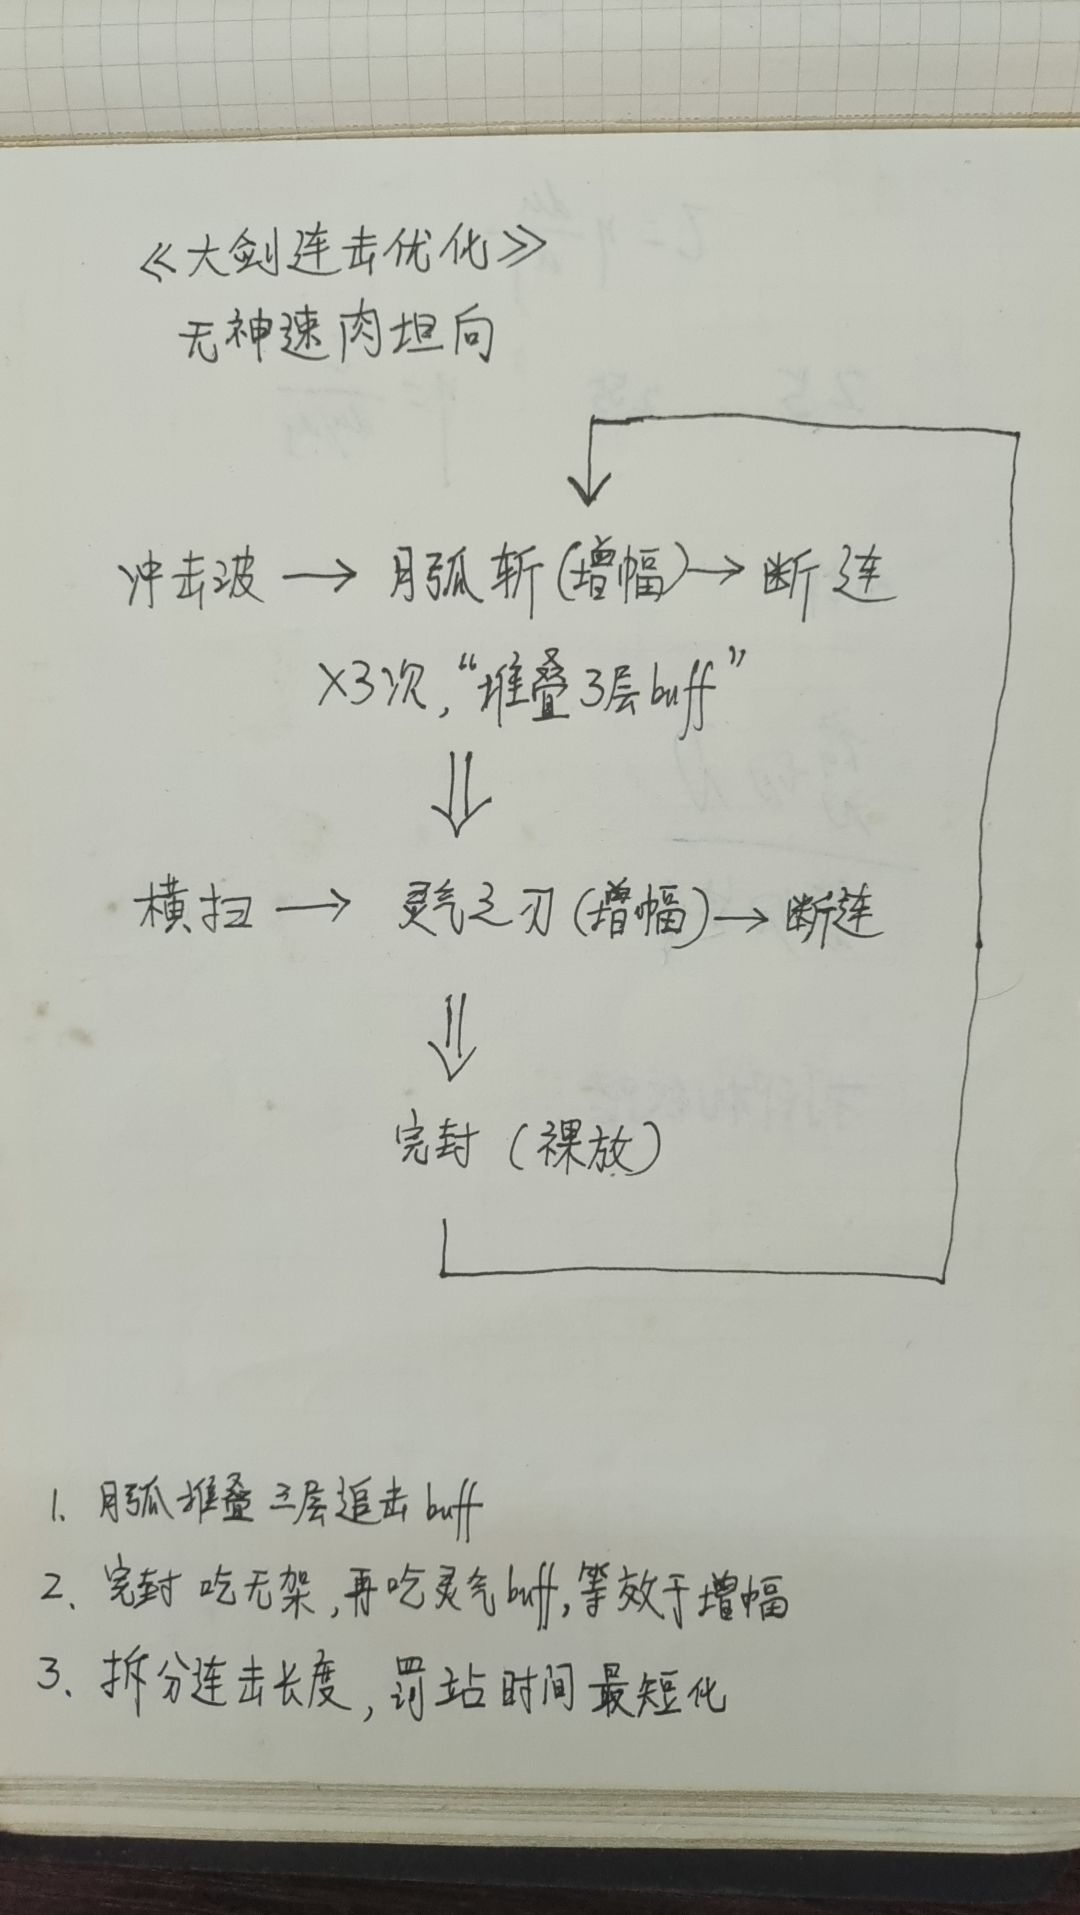 《大剑连击优化》
无神速肉坦向
冲击波→月弧斩(增幅)→断连
×3次,“堆叠3层buff”
横扫→灵气之刃(增幅)→断连
完封(裸放)
1、月弧堆叠三层追击buff
2、完封吃无架,再吃灵气buff,等效于增幅
3、拆分连击长度,罚站时间最短化